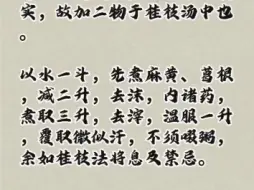 实，故加二物于桂枝汤中也
。
以水一斗，先煮麻黄、葛根
，减二升，去沫，内诸药，
煮取三升，去滓，温服一升
，覆取微似汗，不须啜粥，
余如桂枝法将息及禁忌。